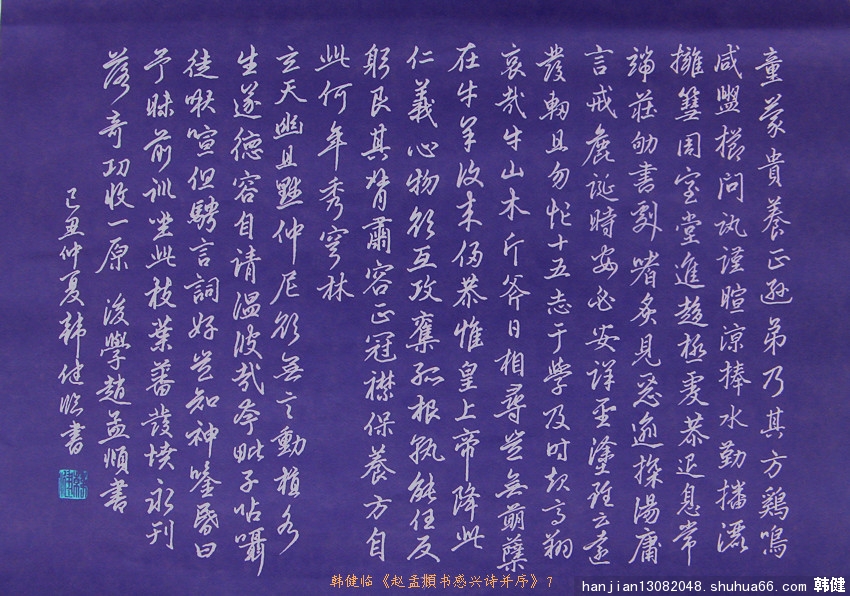 童蒙貴養正遜弟乃其方鷄鳴
咸盥櫛問訊謹暄涼捧水勤播灑
擁篲周室堂進趨極虔恭退息常
端莊劬書劇嗜炙見惡逾探湯庸
言戒麁誕時安必安詳聖塗雖云遠
發軔且勿忙十五志于學及时起高翔
哀哉牛山木斤斧日相尋豈無萌蘖
在牛羊復来侵恭惟皇上帝降此
仁義心物欲互攻奪孤根孰能任反
躬艮其背肅容正冠襟保養方自
此何年秀穹林
玄天幽且默仲尼欲無言動植各
生遂德容自清溫彼哉夸毗子呫囁
徒啾喧但騁言詞好豈知神鑒昏曰
予昧前訓坐此枝葉蕃發憤永刊
落奇功收一原 後學趙孟頫書
己丑仲夏韓健臨書
韩健临《赵孟頫书感兴诗并序》7
hanjian13082048.shuhua66.com 韩健